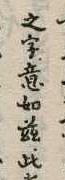 之字意如茲此